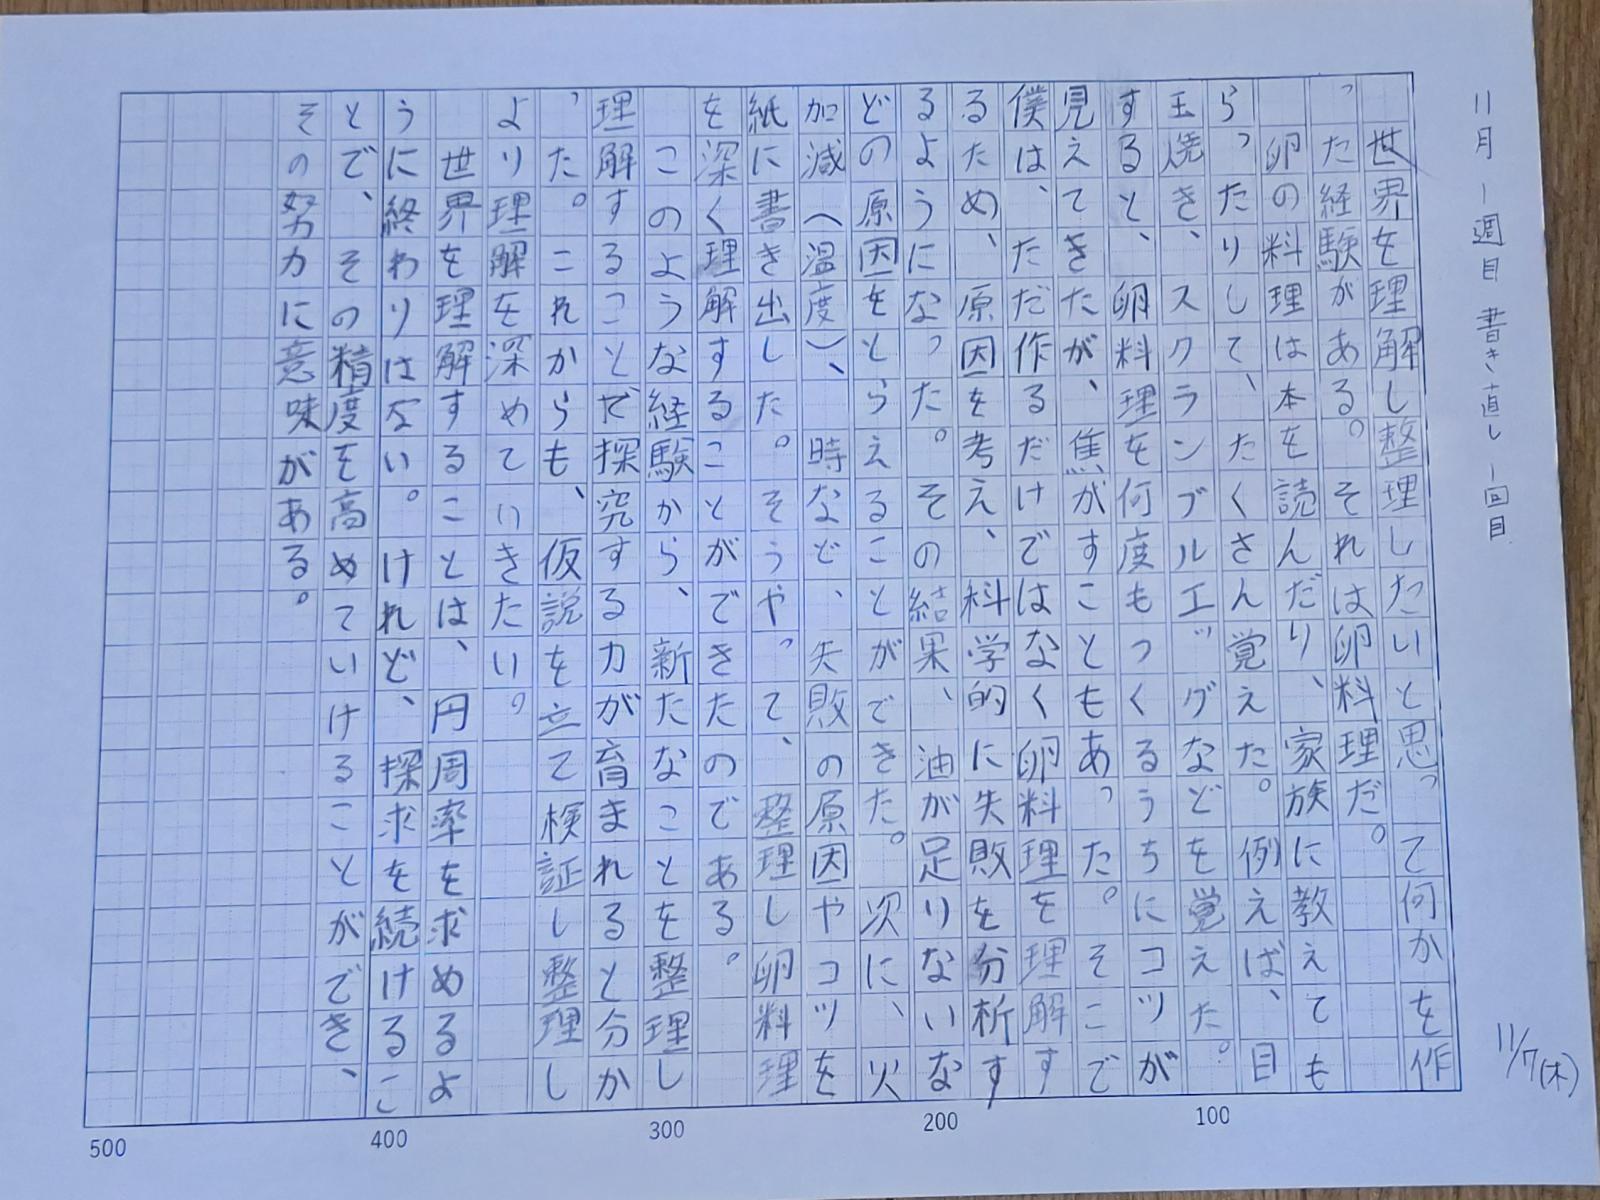 11月 1週目 書き直し 1回目
11/7(木)
世界を理解し整理したいと思って何かを作
った経験がある。それは卵料理だ。
卵の料理は本を読んだり、家族に教えても
らったりして、たくさん覚えた。例えば、目
玉焼き、スクランブルエッグなどを覚えた。
すると、卵料理を何度もつくるうちにコツが
見えてきたが、焦がすこともあった。そこで
僕は、ただ作るだけではなく卵料理を理解す
るため、原因を考え、科学的に失敗を分析す
るようになった。その結果、油が足りないな
どの原因をとらえることができた。次に、火
加減(温度)、時など、失敗の原因やコツを
紙に書き出した。そうやって、整理し卵料理
を深く理解することができたのである。
このような経験から、新たなことを整理し
理解することで探究する力が育まれると分か
った。これからも、仮説を立て検証し整理し
より理解を深めていきたい。
世界を理解することは、円周率を求めるよ
うに終わりはない。けれど、探求を続けるこ
とで、その精度を高めていけることができ、
その努力に意味がある。
100
200
300
400
500